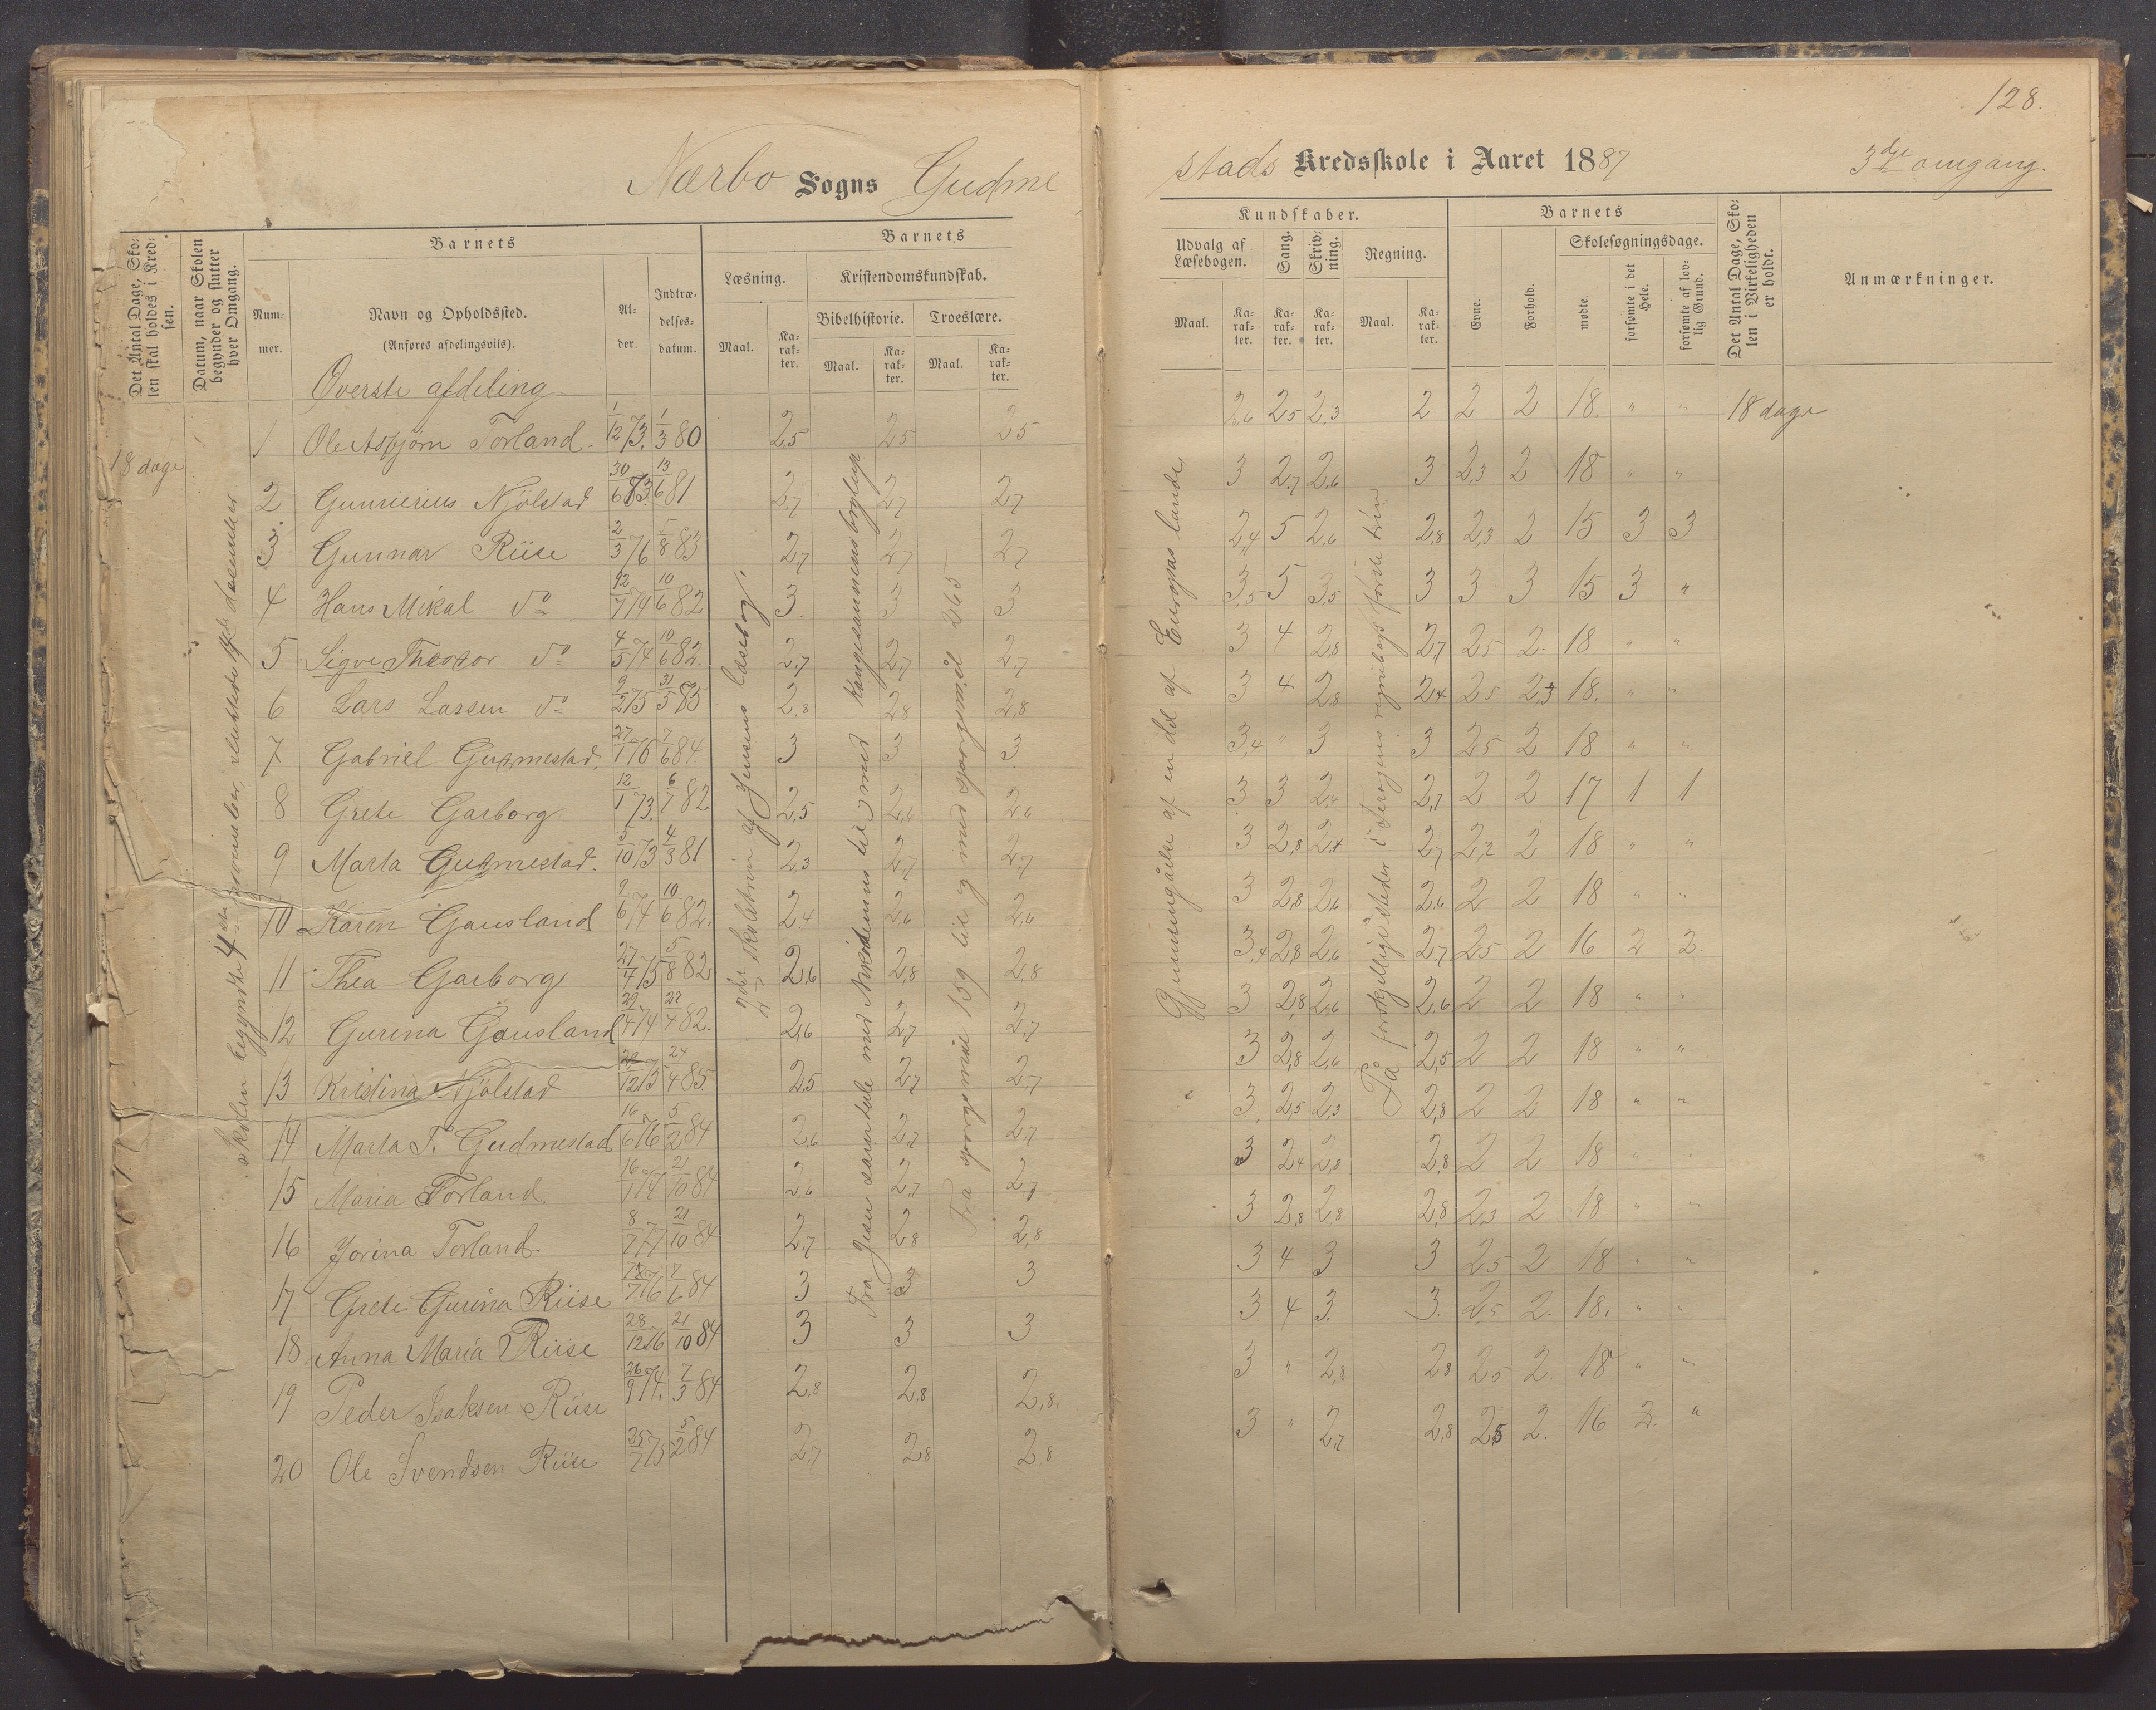 128.
Nærbo Sogns Gudme
stads Kredsskole i Aaret 1887 3die omgang.
Det Antal Dage, Skolen skal holdes i Kredsen.
Datum, naar Skolen begynder og slutter hver Omgang.
Barnets
Nummer.
Navn og Opholdssted.
(Anføres afdelingsviis).
Alder.
Indtrædelsesdatum.
Barnets
Læsning.
Kristendomskundskab.
Bibelhistorie. Troeslære.
Maal. Karakter. Maal. Karakter. Maal. Karakter.
Kundskaber.
Udvalg af Læsebogen.
Sang.
Skrivning.
Regning.
Maal. Karakter. Karakter. Karakter. Maal. Karakter.
Barnets
Evne.
Forhold.
Skolesøgningsdage.
mødte.
forsømte i det Hele.
forsømte af lovlig Grund.
Det Antal Dage, Skolen i Virkeligheden er holdt.
Anmærkninger.
Øverste afdeling
18 dage
Skolen begyndte 4de november, sluttede
2det skoletrin af Jensens læsebog.
Fra Jesu samtale med Nikodemus til med
Fra spørgsmål 159 til og med spørgsmål 265
Gjennemgåelse af en del af Europas lande
På forskjellige steder i regnebogs første trin
1 Ole Asbjørn Torland. 1/12 73. 1/3 80 2,5 2,5 2,5 2,6 2,5 2,3 2 2 2 18. " " 18 dage
2 Gunnerius Njølstad 30/6 73. 13/6 81 2,7 2,7 2,7 3 2,7 2,6 3 2,3 2 18 " "
3 Gunnar Riise 2/3 76 5/8 83 2,7 2,7 2,7 2,4 5 2,6 2,8 2,3 2 15 3 3
4 Hans Mikal do 12/7 74 10/6 82 3 3 3 3,5 5 3,5 3 3 3 15 3 "
5 Sigve Theodor do 4/5 74 10/6 82. 2,7 2,7 2,7 3 4 2,8 2,7 2,5 2. 18 " "
6 Lars Lassen do 9/2 75 31/5 85 2,8 2,8 2,8 3 4 2,8 2,4 2,5 2,3 18. " "
7 Gabriel Gudmestad. 27/1 76 7/6 84. 3 3 3 3,4 " 3 3 2,5 2 18 " "
8 Grete Garborg 12/1 73. 6/7 82 2,5 2,6 2,6 3 3 2,4 2,7 2 2 17 1 1
9 Marta Gudmestad. 5/10 73 4/3 81 2,3 2,7 2,7 3 2,8 2,4 2,7 2,2 2 18 " "
10 Karen Gausland 9/6 74 10/6 82. 2,4 2,6 2,6 3 2,8 2,6 2,6 2 2 18 " "
11 Thea Garborg 27/4 75 5/8 82 2,6 2,8 2,8 3,4 2,8 2,6 2,7 2,5 2 16 2 2
12 Gurina Gausland 29/4 74 22/4 82. 2,6 2,7 2,7 3 2,8 2,6 2,6 2 2 18 " "
13 Kristina Njølstad 20/12 73 24/4 85. 2,5 2,7 2,7 3 2,8 2,6 2,5 2 2 18 " "
14 Marta T. Gudmestad 16/6 76 5/2 84 2,6 2,7 2,7 3 2,5 2,3 2,8 2 2 18 " "
15 Maria Torland. 16/1 74 21/10 84 2,6 2,7 2,7 3 2,4 2,8 2,8 2 2 18 " "
16 Jorina Torland. 8/7 77 21/10 84 2,7 2,8 2,8 3 2,8 2,8 2,8 2,3 2 18 " "
17 Grete Gurina Riise 18/7 76 7/6 84 3 3 3 3 4 3 3 2,5 2 18 " "
18 Anna Maria Riise 28/12 76 21/10 84 3 3 3 3 4 3. 3. 2,5 2. 18. " "
19 Peder Isaksen Riise 26/9 74. 7/3 84 2,8 2,8 2,8. 3 " 2,8 2,8 2,5 2. 18 " "
20 Ole Svendsen Riise 25/7 75 5/2 84 2,7 2,8 2,8 3 " 2,7 2,8 2,5 2. 16 2. "